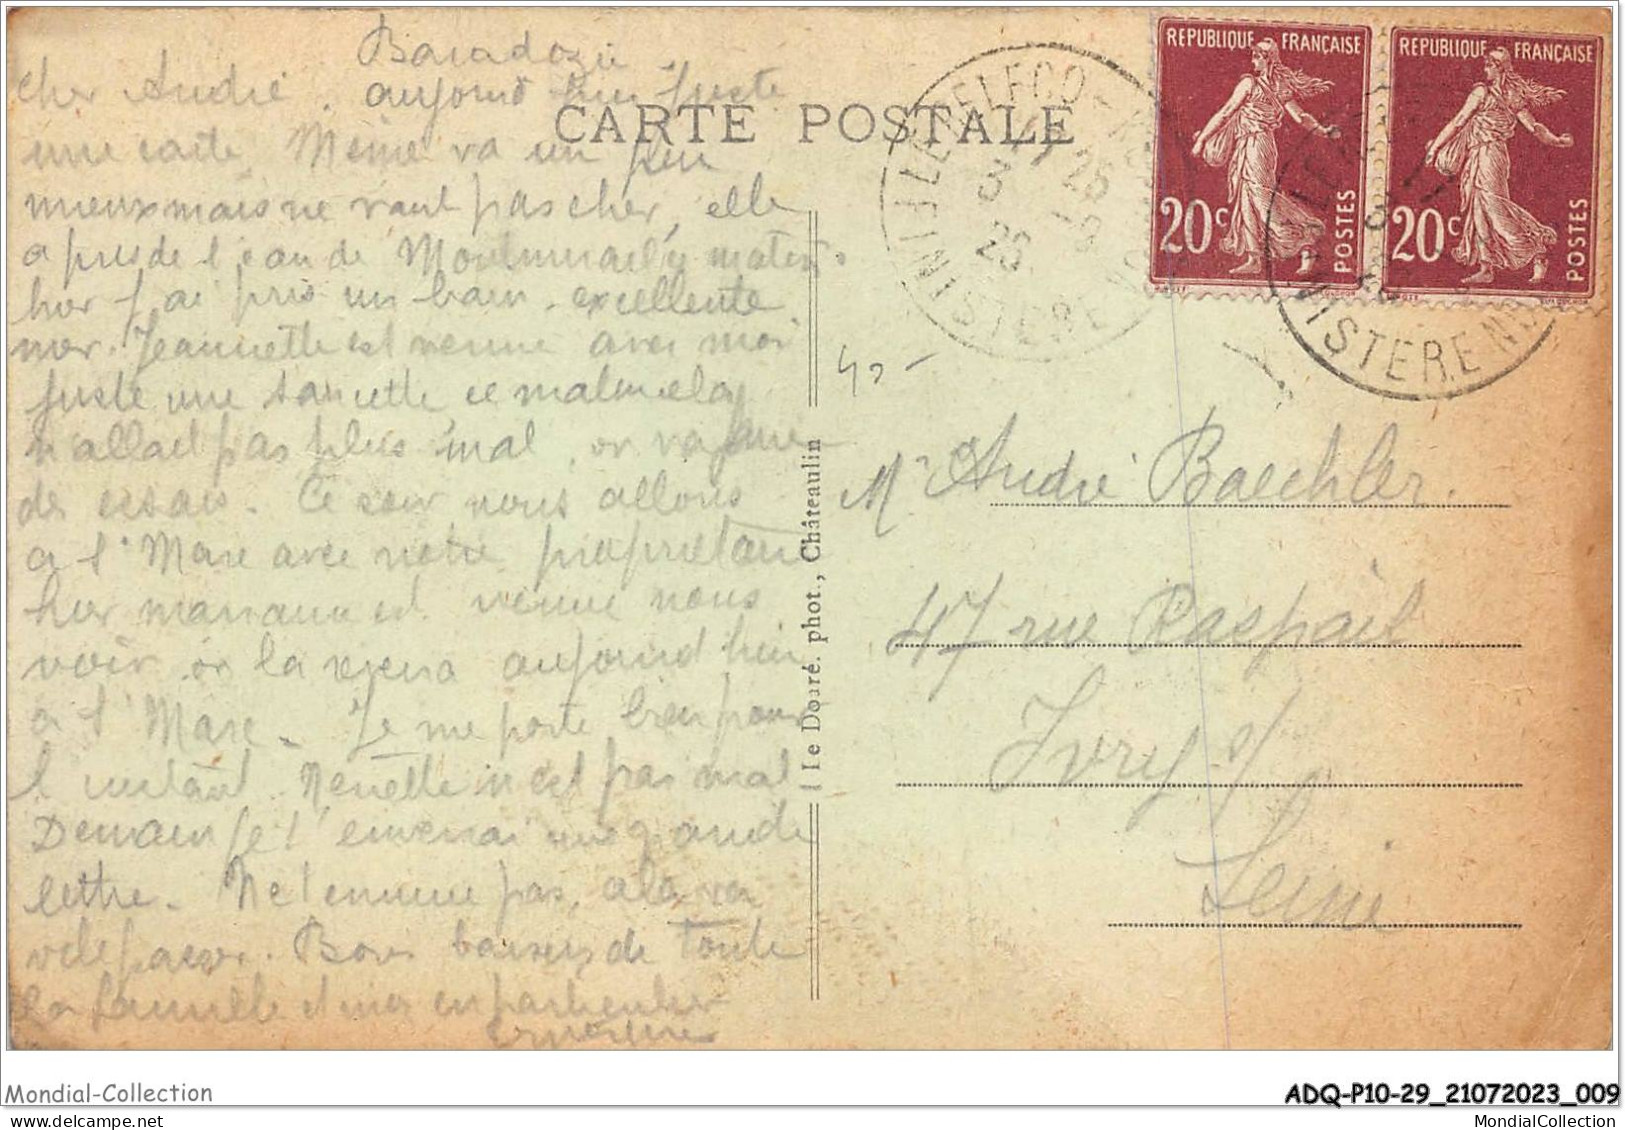 Baradozic
Cher André. aujourd hui juste
CARTE POSTALE
une carte, Mémé va un peu
mieux mais ne vaut pas cher, elle
a pris de l'eau de ce matin.
hier j'ai pris un bain. excellente
mer. Jeannette est venue avec moi
juste une
n'allait pas plus mal, on va faire
des essais. Ce soir nous allons
a l' avec notre propriétaire
hier maman est venue nous
voir on la reverra aujourd hui
a l' Je me porte bien pour
l'instant. Nénette n'est pas mal
Demain je t'enverrai une grande
lettre. Ne t'ennuie pas, cela va
vite passer. Bons baisers de toute
la famille et moi en particulier
REPUBLIQUE FRANÇAISE
20c POSTES
REPUBLIQUE FRANÇAISE
20c POSTES
FINISTERE
FINISTERE
Le Doaré. phot., Châteaulin
Mr André Baechler.
47 rue Raspail
Ivry s/
Seine
Mondial-Collection
ADQ-P10-29_21072023_009
MondialCollection
MondialCollection